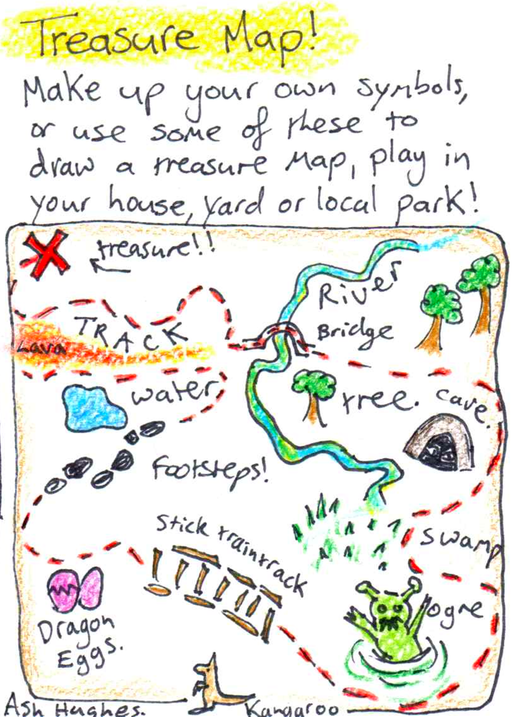 Treasure Map!
Make up your own symbols,
or use some of these to
draw a treasure Map, play in
your house, yard or local park!
treasure!!
River
TRACK
Bridge
Lava
water
tree.
cave.
Footsteps!
Stick traintrack
swamp
ogre
Dragon
Eggs.
Ash Hughes.
Kangaroo